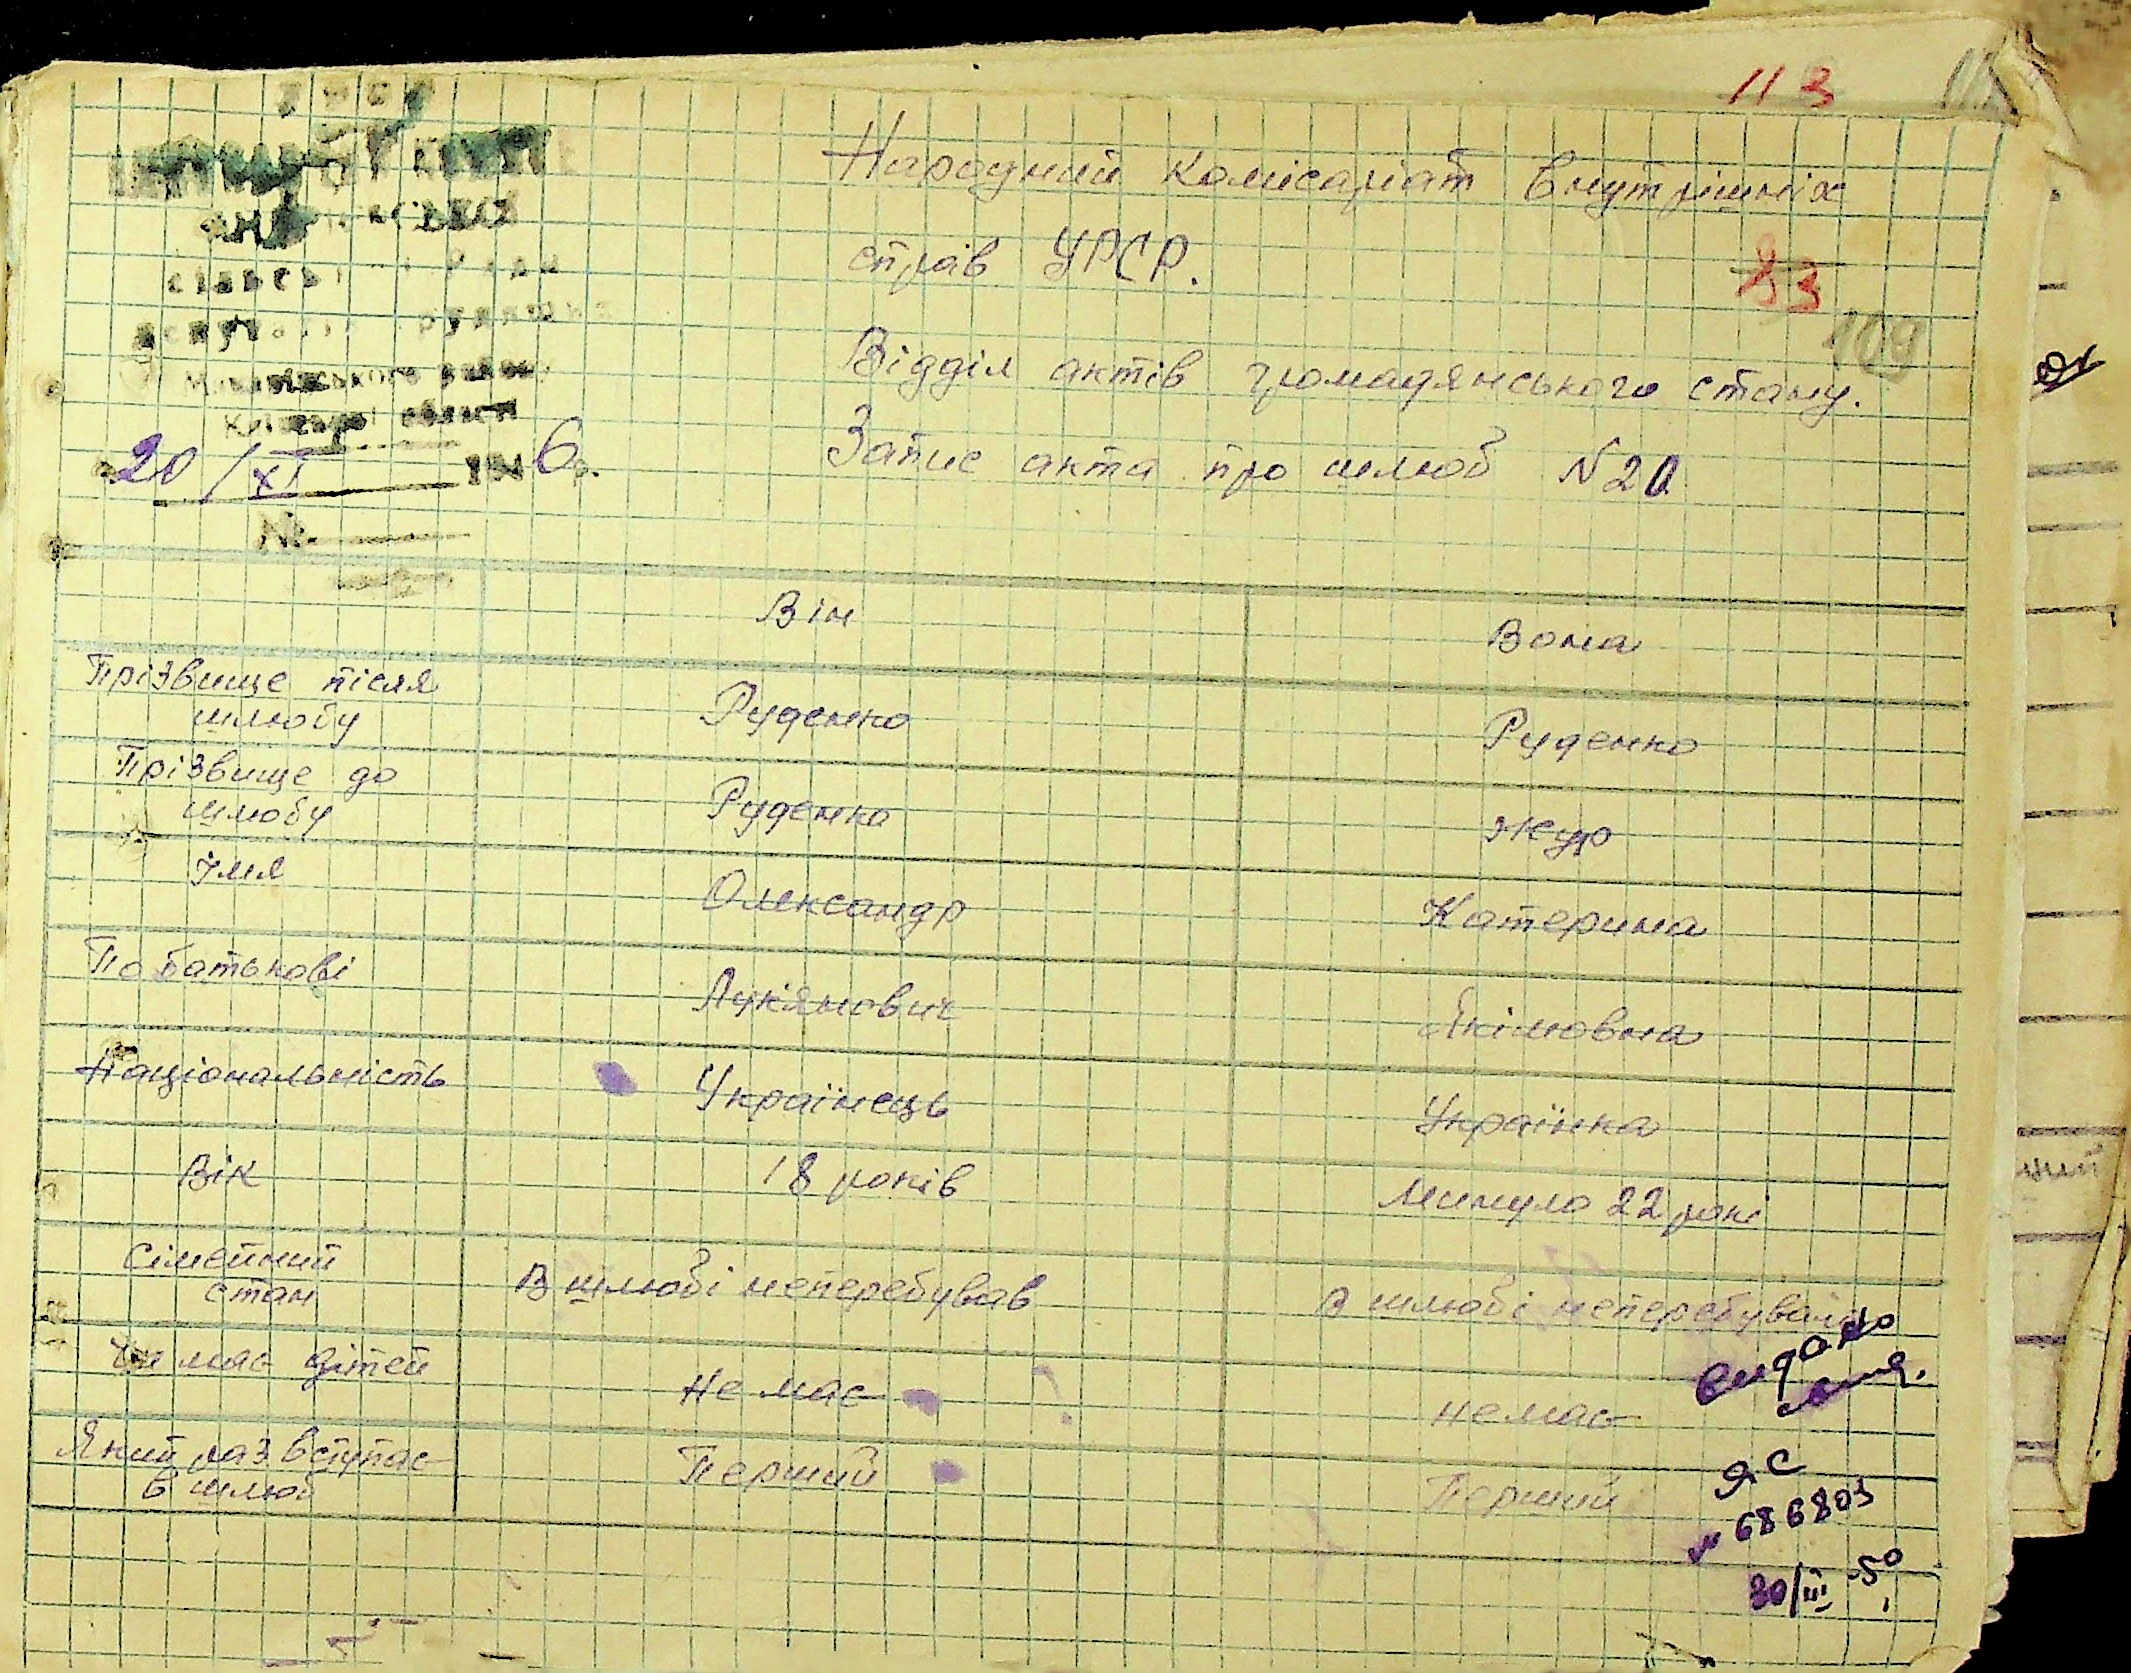 113
Народний комісаріат внутрішніх
справ УРСР.
83
109
Відділ актів громадянського стану.
Запис акта про шлюб N20
УРСР
сільської Ради
депутатів трудящих
району
області
20/XI 1946р.
№
Він Вона
Прізвище після
шлюбу Руденко Руденко
Прізвище до
шлюбу Руденко Жур
Імя Олександр Катерина
По батькові Лукянович Якімовна
Національність Українець Українка
Вік 18 років Минуло 22 рокі
Сімейний
стан В шлюбі неперебував В шлюбі неперебувала
Чи має дітей Не має немає
Який раз вступає
в шлюб Перший Перший
видано
ЯС
№ 686803
30/III-50